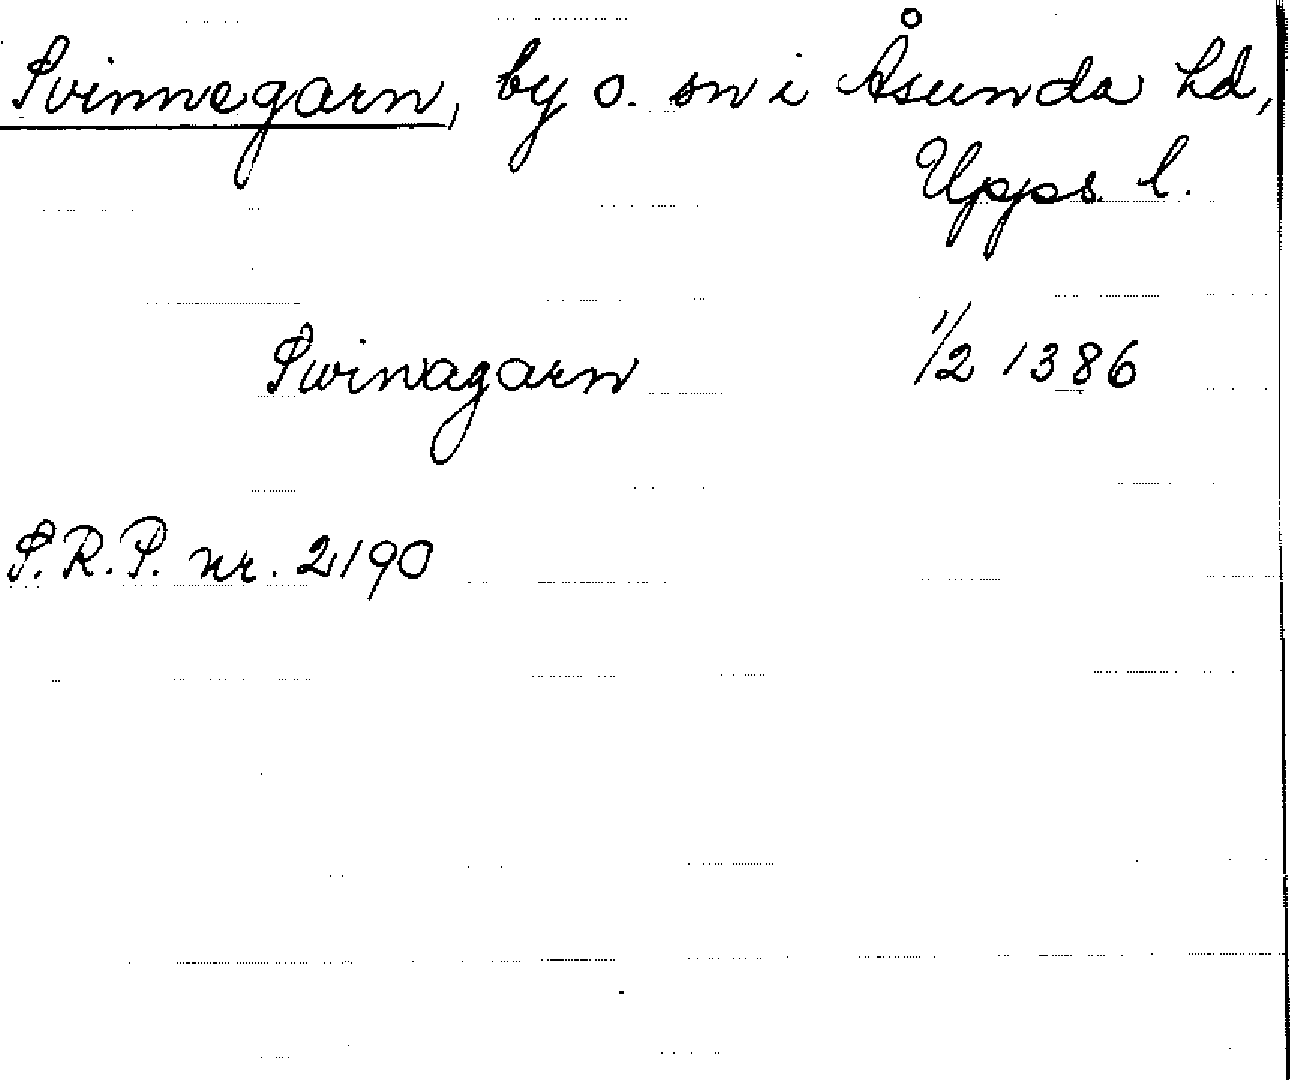 Svinnegarn, by o. sn i Åsunda hd,
Upps. l.
Swinagarn 1/2 1386
S.R.P. nr. 2190